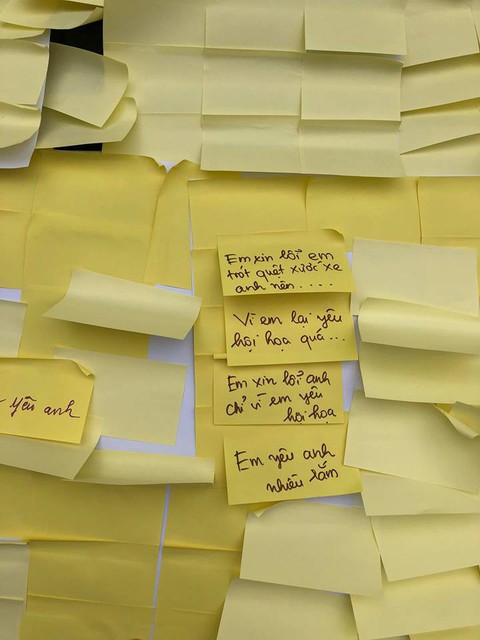 Em xin lỗi em
trót quệt xước xe
anh nên....
Vì em lại yêu
hội họa quá...
Em xin lỗi anh
chỉ vì em yêu
hội họa
Em yêu anh
nhiều lắm
yêu anh